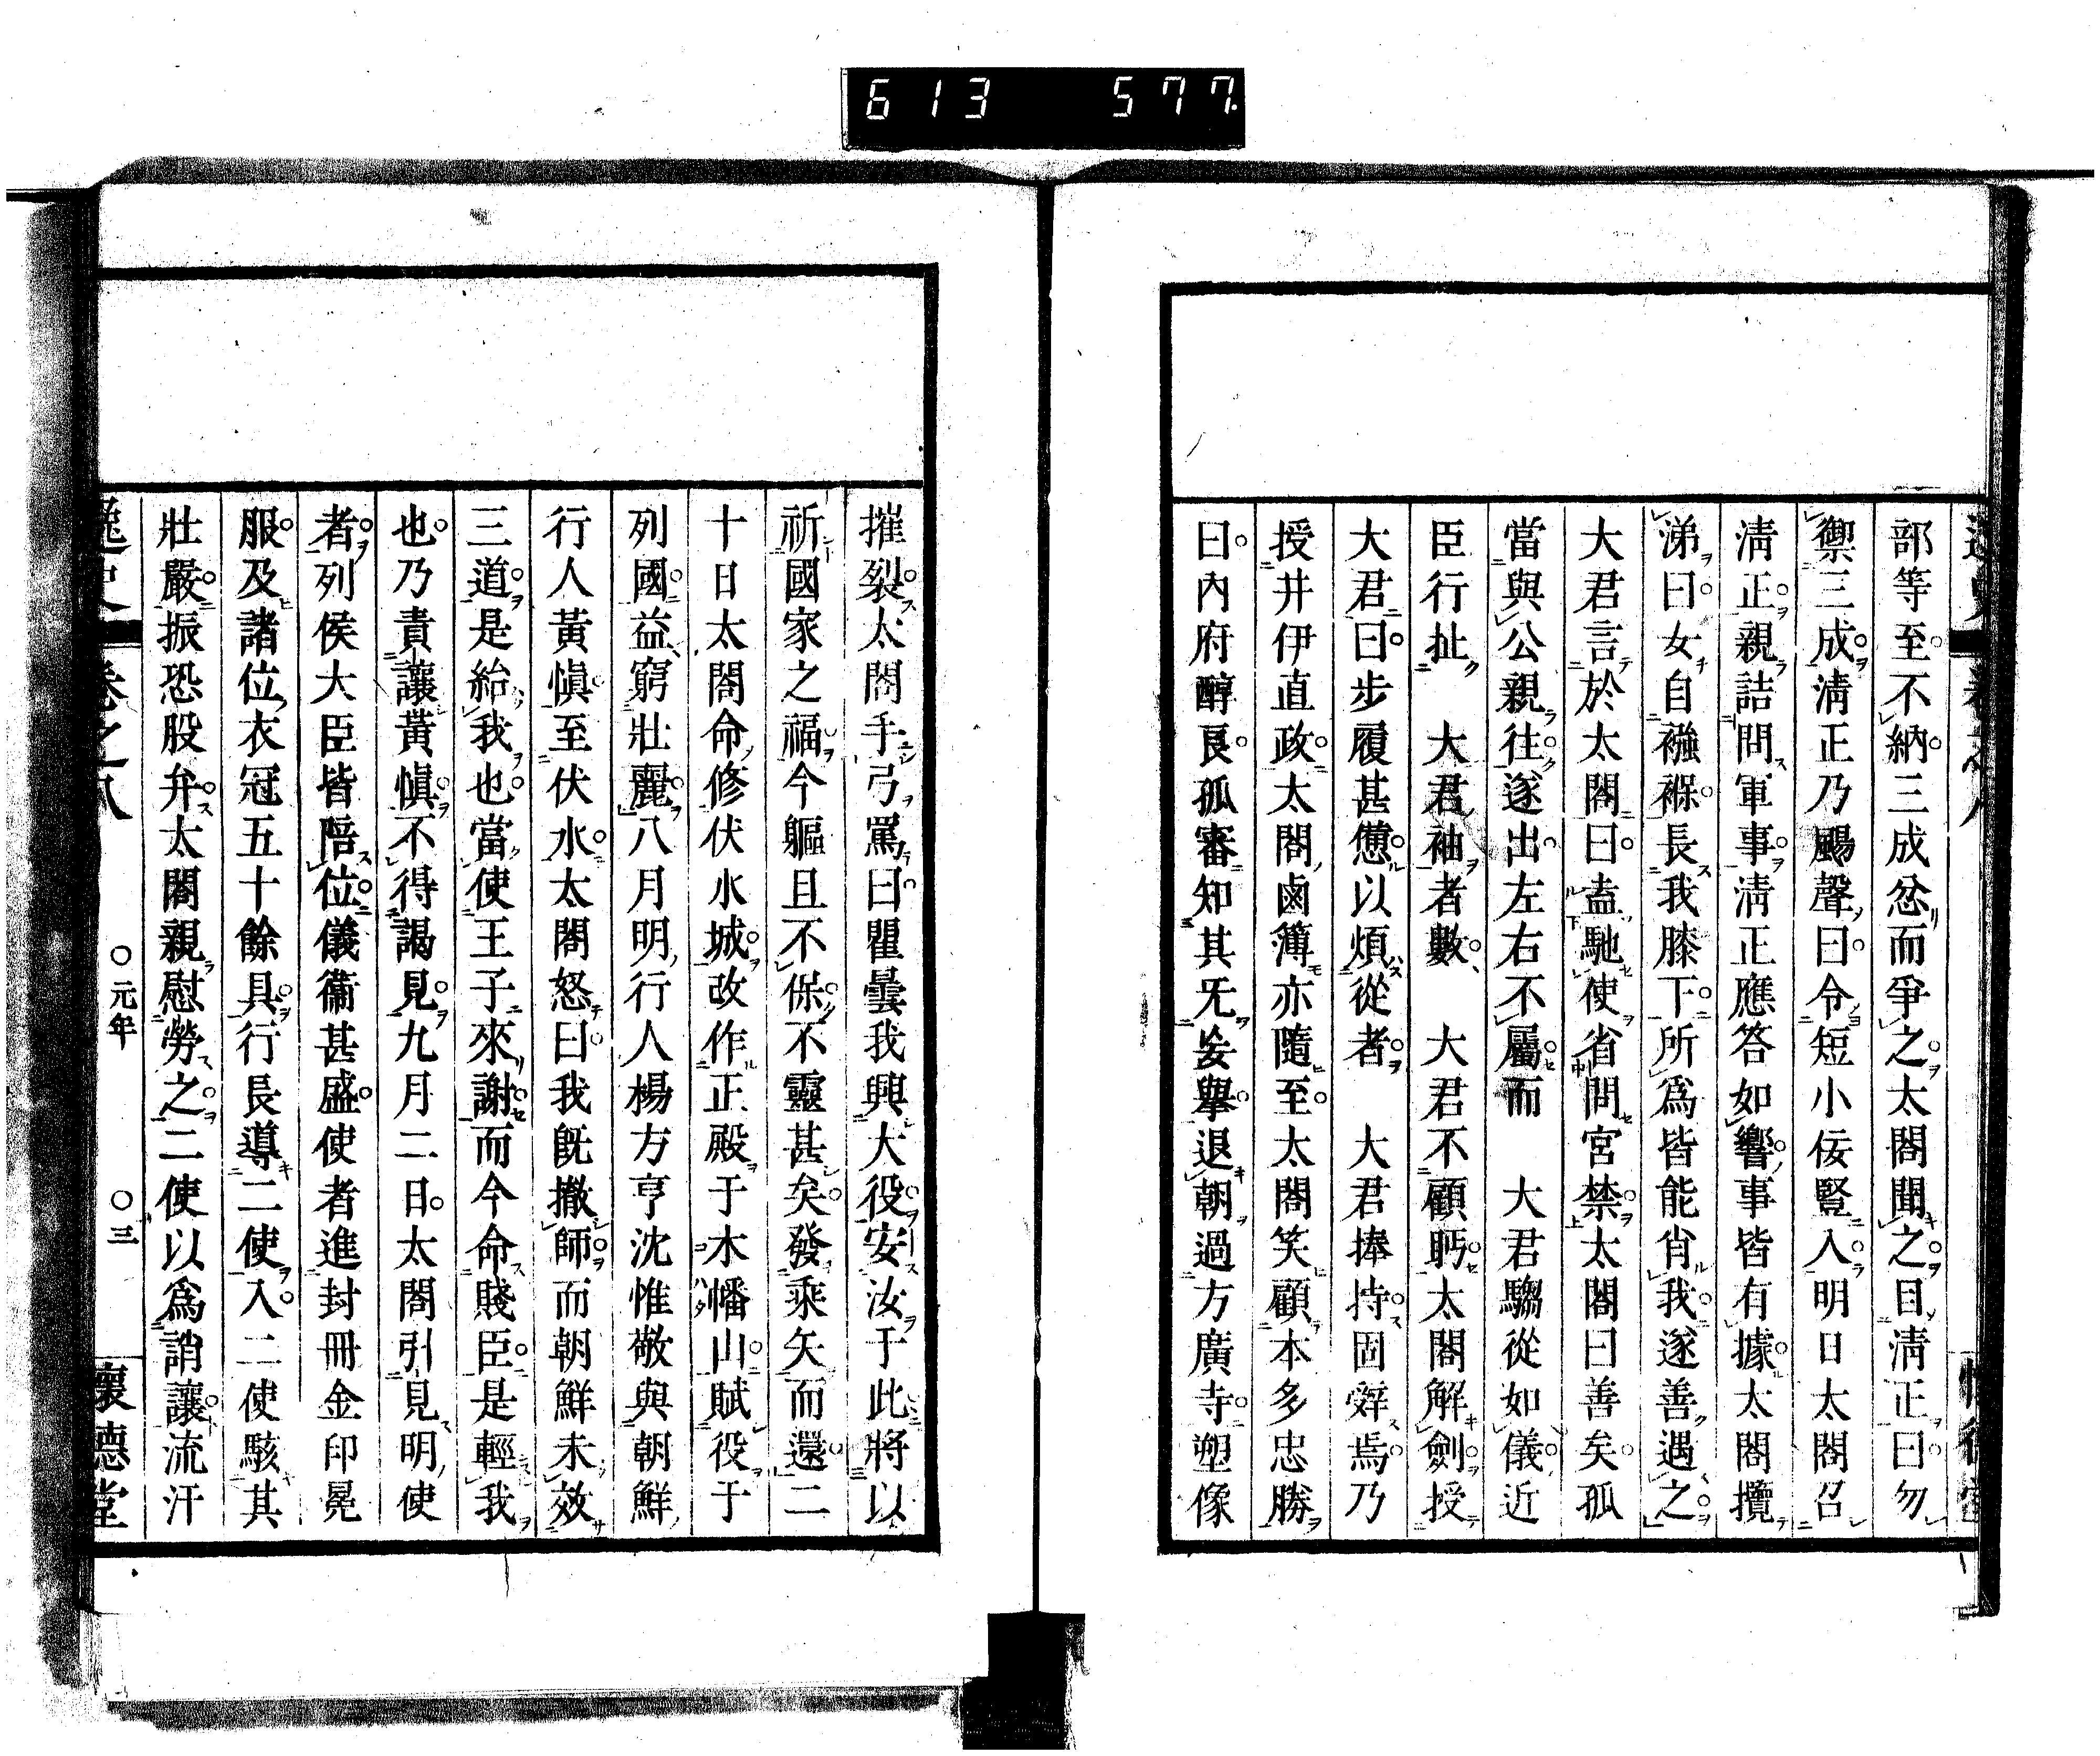 613 577
部等至不納三成忿而爭之太閤聞之目清正曰勿
禦三成清正乃颺聲曰令短小佞豎入明日太閤召
清正親詰問軍事清正應答如響事皆有據太閤攬
涕曰女自襁褓長我膝下所爲皆能肖我遂善遇之
大君言於太閤曰盍馳使省問宮禁太閤曰善矣孤
當與公親往遂出左右不屬而　大君騶從如儀近
臣行扯　大君袖者數　大君不顧眄太閤解劍授
大君曰步履甚憊以煩從者　大君捧持固辞焉乃
授井伊直政太閤鹵簿亦隨至太閤笑顧本多忠勝
曰內府醇良孤審知其无妄擧退朝過方廣寺塑像
摧裂太閤手弓罵曰瞿曇我興大役安汝于此將以
祈國家之福今軀且不保不靈甚矣發乘矢而還二
十日太閤命修伏水城改作正殿于木幡山賦役于
列國益窮壯麗八月明行人楊方亨沈惟敬與朝鮮
行人黃愼至伏水太閤怒曰我旣撤師而朝鮮未效
三道是紿我也當使王子來謝而今命賤臣是輕我
也乃責讓黃愼不得謁見九月二日太閤引見明使
者列侯大臣皆陪位儀衞甚盛使者進封冊金印冕
服及諸位衣冠五十餘具行長導二使入二使駭其
壯嚴振恐股弁太閤親慰勞之二使以爲誚讓流汗
逸史 卷之八 〇元年 〇三 懷德堂